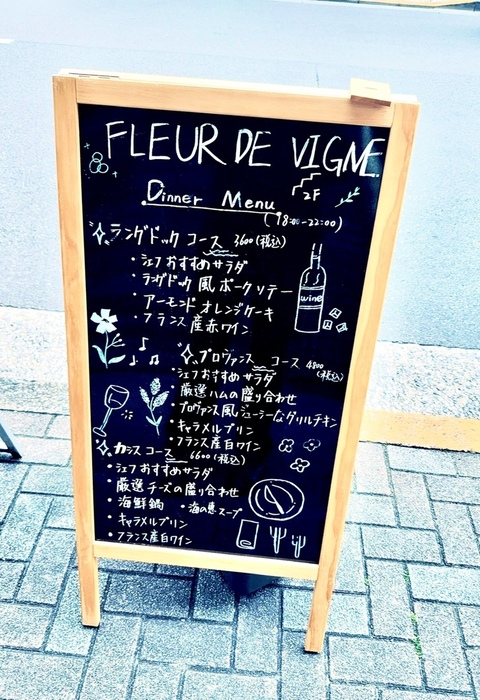 FLEUR DE VIGNE
2F
Dinner Menu
(18:00-22:00)
ラングドック コース 3600(税込)
・シェフおすすめサラダ
・ラングドック風ポークソテー
・アーモンドオレンジケーキ
・フランス産赤ワイン
wine
プロヴァンス コース 4800(税込)
・シェフおすすめサラダ
・厳選ハムの盛り合わせ
・プロヴァンス風ジューシーなグリルチキン
・キャラメルプリン
・フランス産白ワイン
カシス コース 6600(税込)
・シェフおすすめサラダ
・厳選チーズの盛り合わせ
・海鮮鍋 ・海の恵スープ
・キャラメルプリン
・フランス産白ワイン